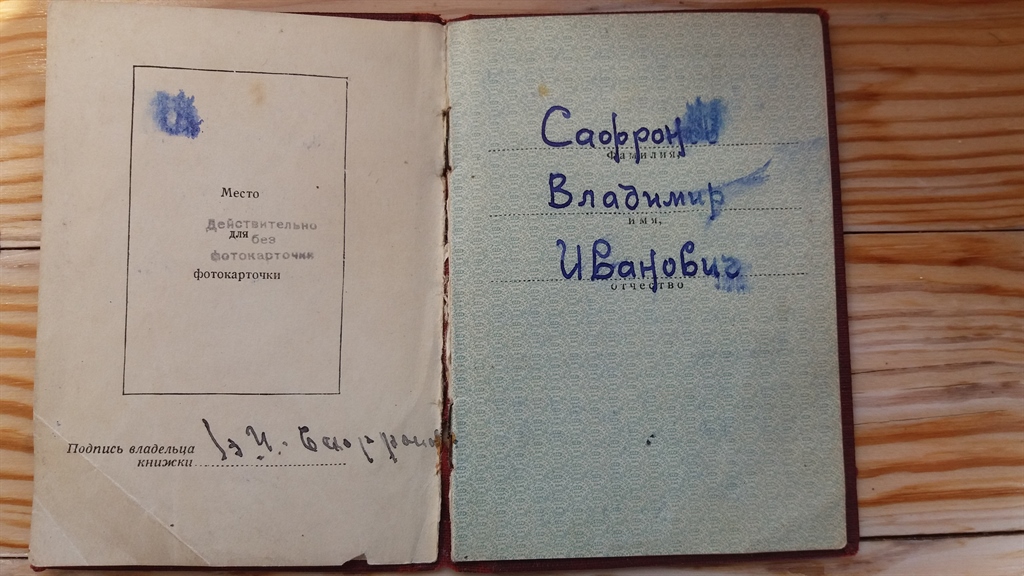 Место
Действительно
для
без
фотокарточки
фотокарточки
Подпись владельца
книжки
фамилия,
Владимир
имя,
Иванович
отчество